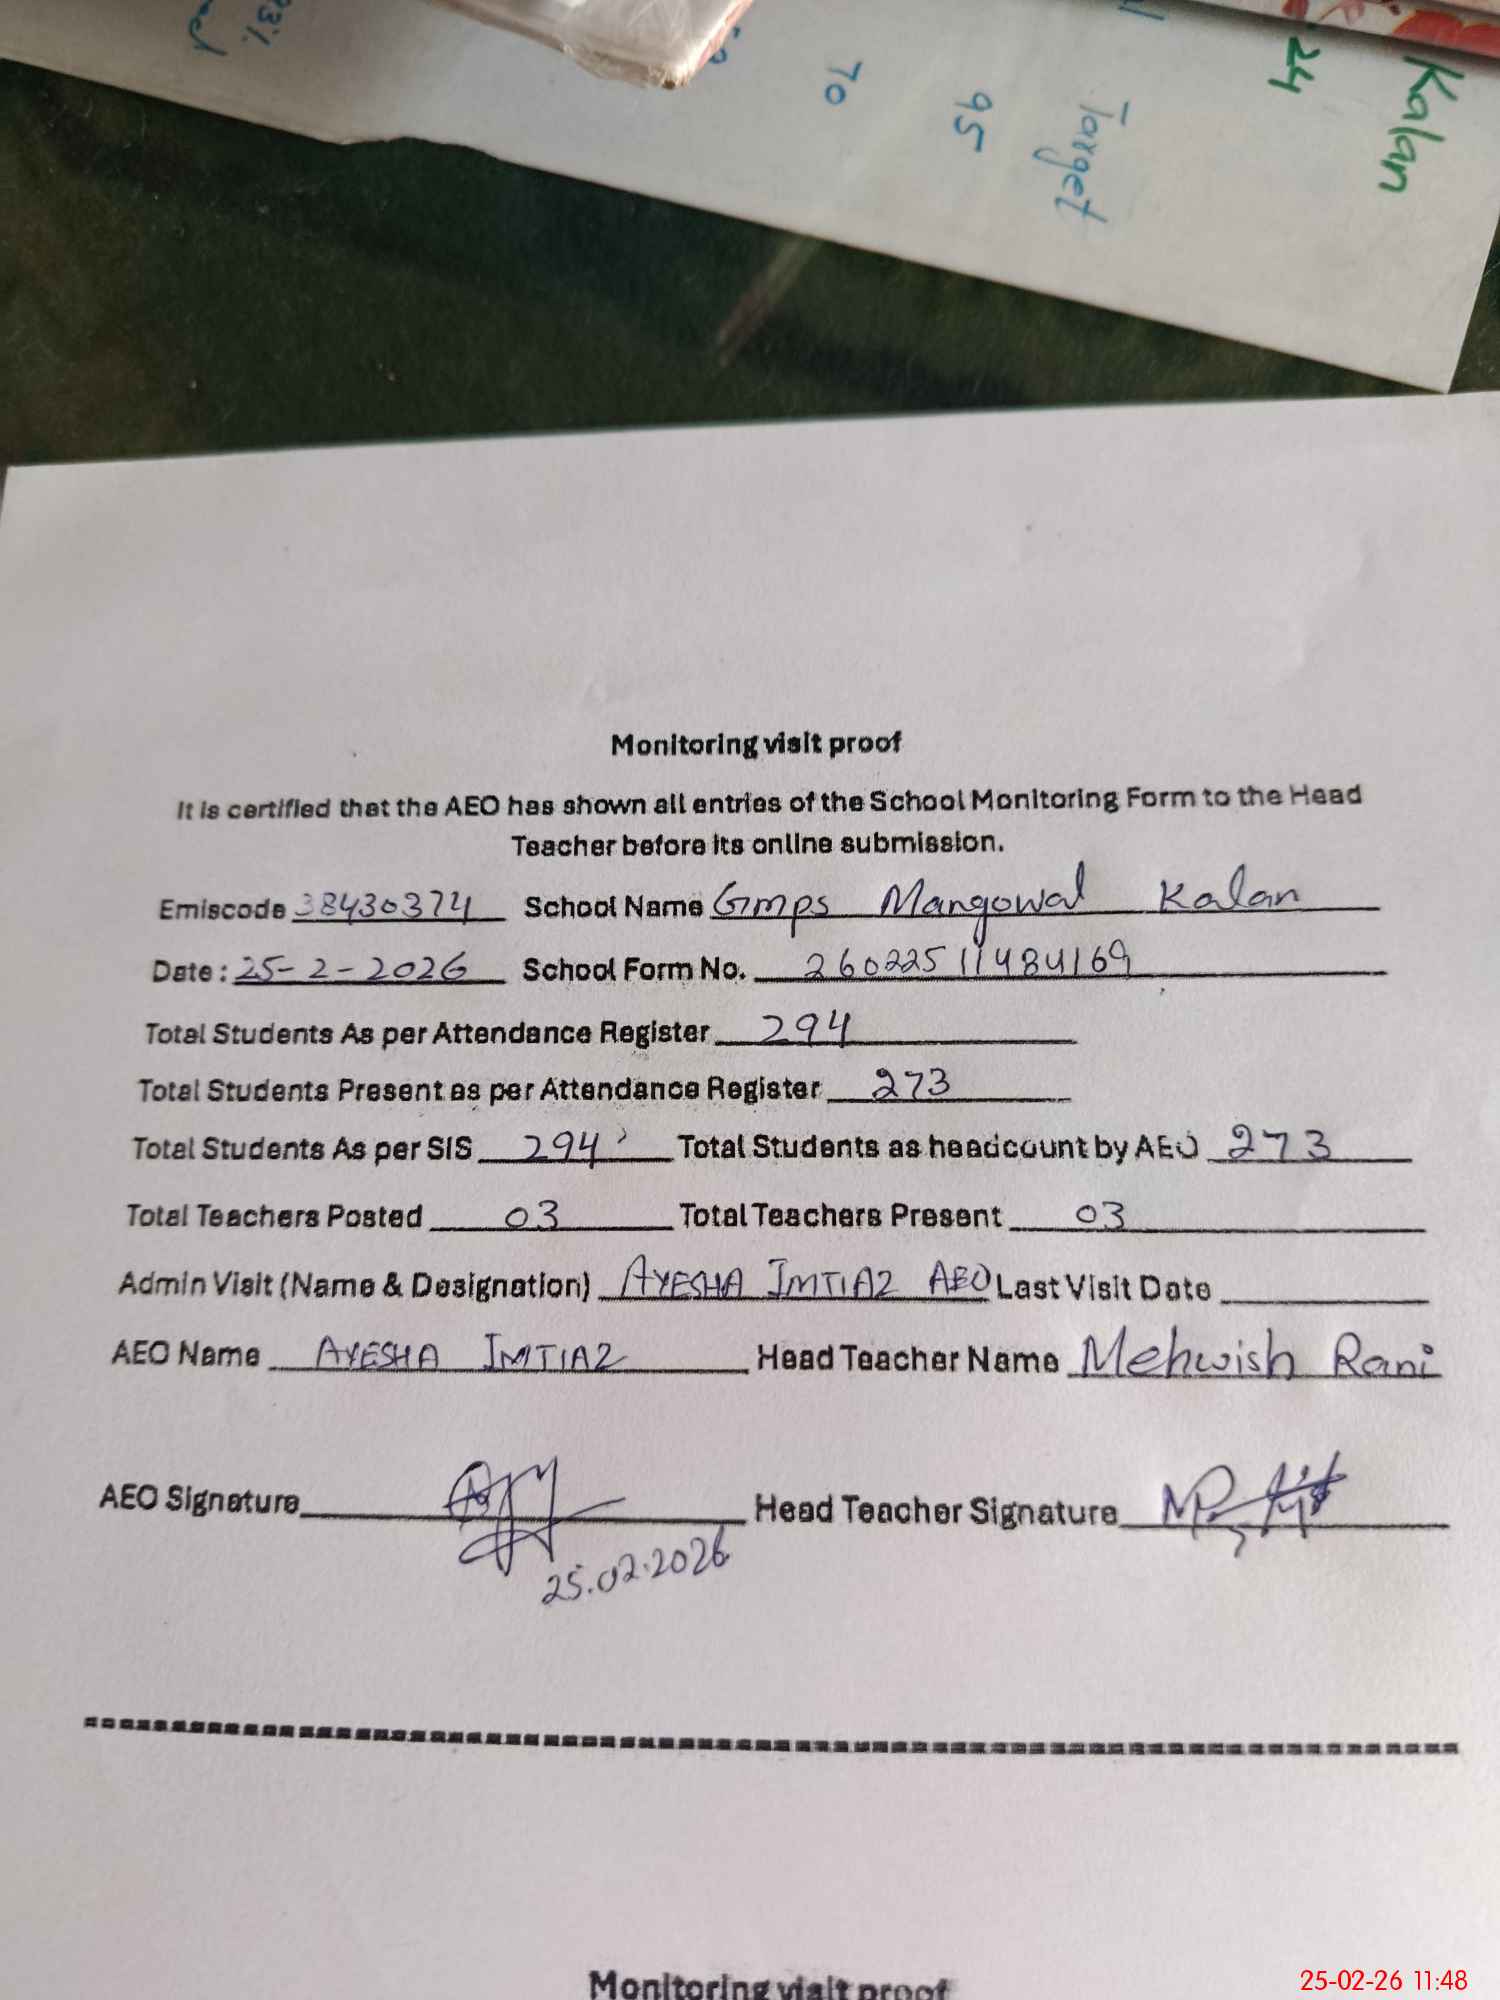 93%
70
95
Target
24
Kalan
Monitoring visit proof
It is certified that the AEO has shown all entries of the School Monitoring Form to the Head
Teacher before its online submission.
Emiscode 38430374 School Name Gmps Mangowal Kalan
Date: 25-2-2026 School Form No. 26022511484169
Total Students As per Attendance Register 294
Total Students Present as per Attendance Register 273
Total Students As per SIS 294 Total Students as headcount by AEO 273
Total Teachers Posted 03 Total Teachers Present 03
Admin Visit (Name & Designation) AYESHA IMTIAZ AEO Last Visit Date
AEO Name AYESHA IMTIAZ Head Teacher Name Mehwish Rani
AEO Signature Head Teacher Signature
25.02.2026
Monitoring visit proof
25-02-26 11:48